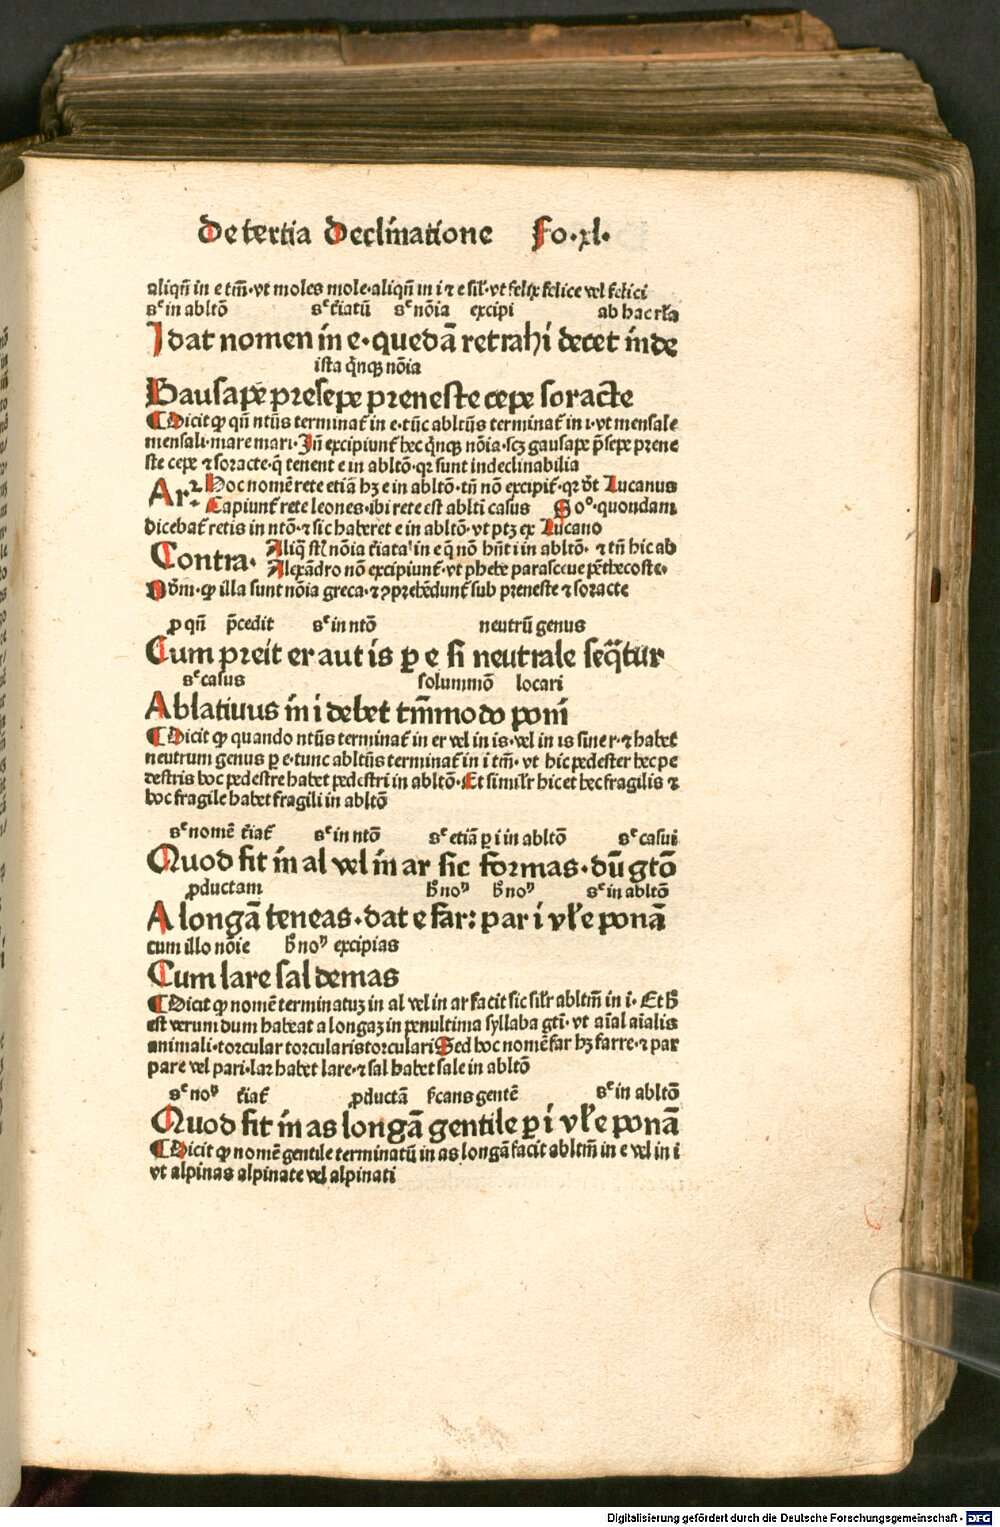 De tertia Declinatione Fo·xl·
aliqn̄ in e tm̄·vt moles mole·aliqn̄ in i ⁊ e sil'·vt felix felice vel felici
sꝰ in abltō sꝰ t̄iatū sꝰ nōia excipi ab hac rl̄a
I dat nomen in e·quedā retrahi decet inde
ista q̄nqꝫ nōia
Gausape presepe preneste cepe soracte
¶Dicit ꝙ qn̄ ntūs terminat̄ in e·tūc abltūs terminat̄ in i·vt mensale
mensali·mare mari·In̄ excipiunt̄ hec q̄nqꝫ nōia·scꝫ gausape p̄sepe prene
ste cepe ⁊ soracte·q̄ tenent e in abltō·qꝛ sunt indeclinabilia
Ar²· Hoc nomē rete etiā hꝫ e in abltō·tn̄ nō excipit̄·qꝛ dt̄ Lucanus
Capiunt̄ rete leones·ibi rete est ablti casus So°·quondam
dicebat̄ retis in ntō·⁊ sic haberet e in abltō·vt ptꝫ ex Lucano
Contra· Aliq̄ st̄ nōia t̄iata in e q̄ nō hn̄t i in abltō· ⁊ tn̄ hic ab
Alexādro nō excipiunt̄·vt phebe parasceue pēthecoste·
Dōm·ꝙ illa sunt nōia greca·⁊ ꝯprehēdunt̄ sub preneste ⁊ soracte
ꝓ qn̄ p̄cedit sꝰ in ntō neutrū genus
Cum preit er aut is ꝑ e si neutrale seq̄tur
sꝰ casus solummō locari
Ablatiuus in i debet tm̄modo poni
¶Dicit ꝙ quando ntūs terminat̄ in er vel in is·vel in ıs sine r·⁊ habet
neutrum genus ꝑ e·tunc abltūs terminat̄ in i tm̄· vt hic pedester hec pe
destris hoc pedestre habet pedestri in abltō·Et simil'r hic et hec fragilis ⁊
hoc fragile habet fragili in abltō
sꝰ nomē t̄iat̄ sꝰ in ntō sꝰ etiā ꝑ i in abltō sꝰ casui
Quod fit in al vel in ar sic formas·dū gtō
ꝓductam h̄ noᵛ h̄ noᵛ sꝰ in abltō
A longā teneas·dat e far: par i vl' e ponā
cum illo nōie h̄ noᵛ excipias
Cum lare sal demas
¶Dicit ꝙ nomē terminatuꝫ in al vel in ar facit sic sil'r abltm̄ in i· Et h̄
est verum dum habeat a longaꝫ in penultima syllaba gtī· vt aīal aīalis
animali·torcular torcularis torculari Sed hoc nomē far hꝫ farre·⁊ par
pare vel pari·lar habet lare·⁊ sal habet sale in abltō
sꝰ noᵛ t̄iat̄ ꝓductā scans gentē sꝰ in abltō
Quod fit in as longā gentile ꝑ i vl' e ponā
¶Dicit ꝙ nomē gentile terminatū in as longā facit abltm̄ in e vel in i
vt alpinas alpinate vel alpinati
Digitalisierung gefördert durch die Deutsche Forschungsgemeinschaft - DFG